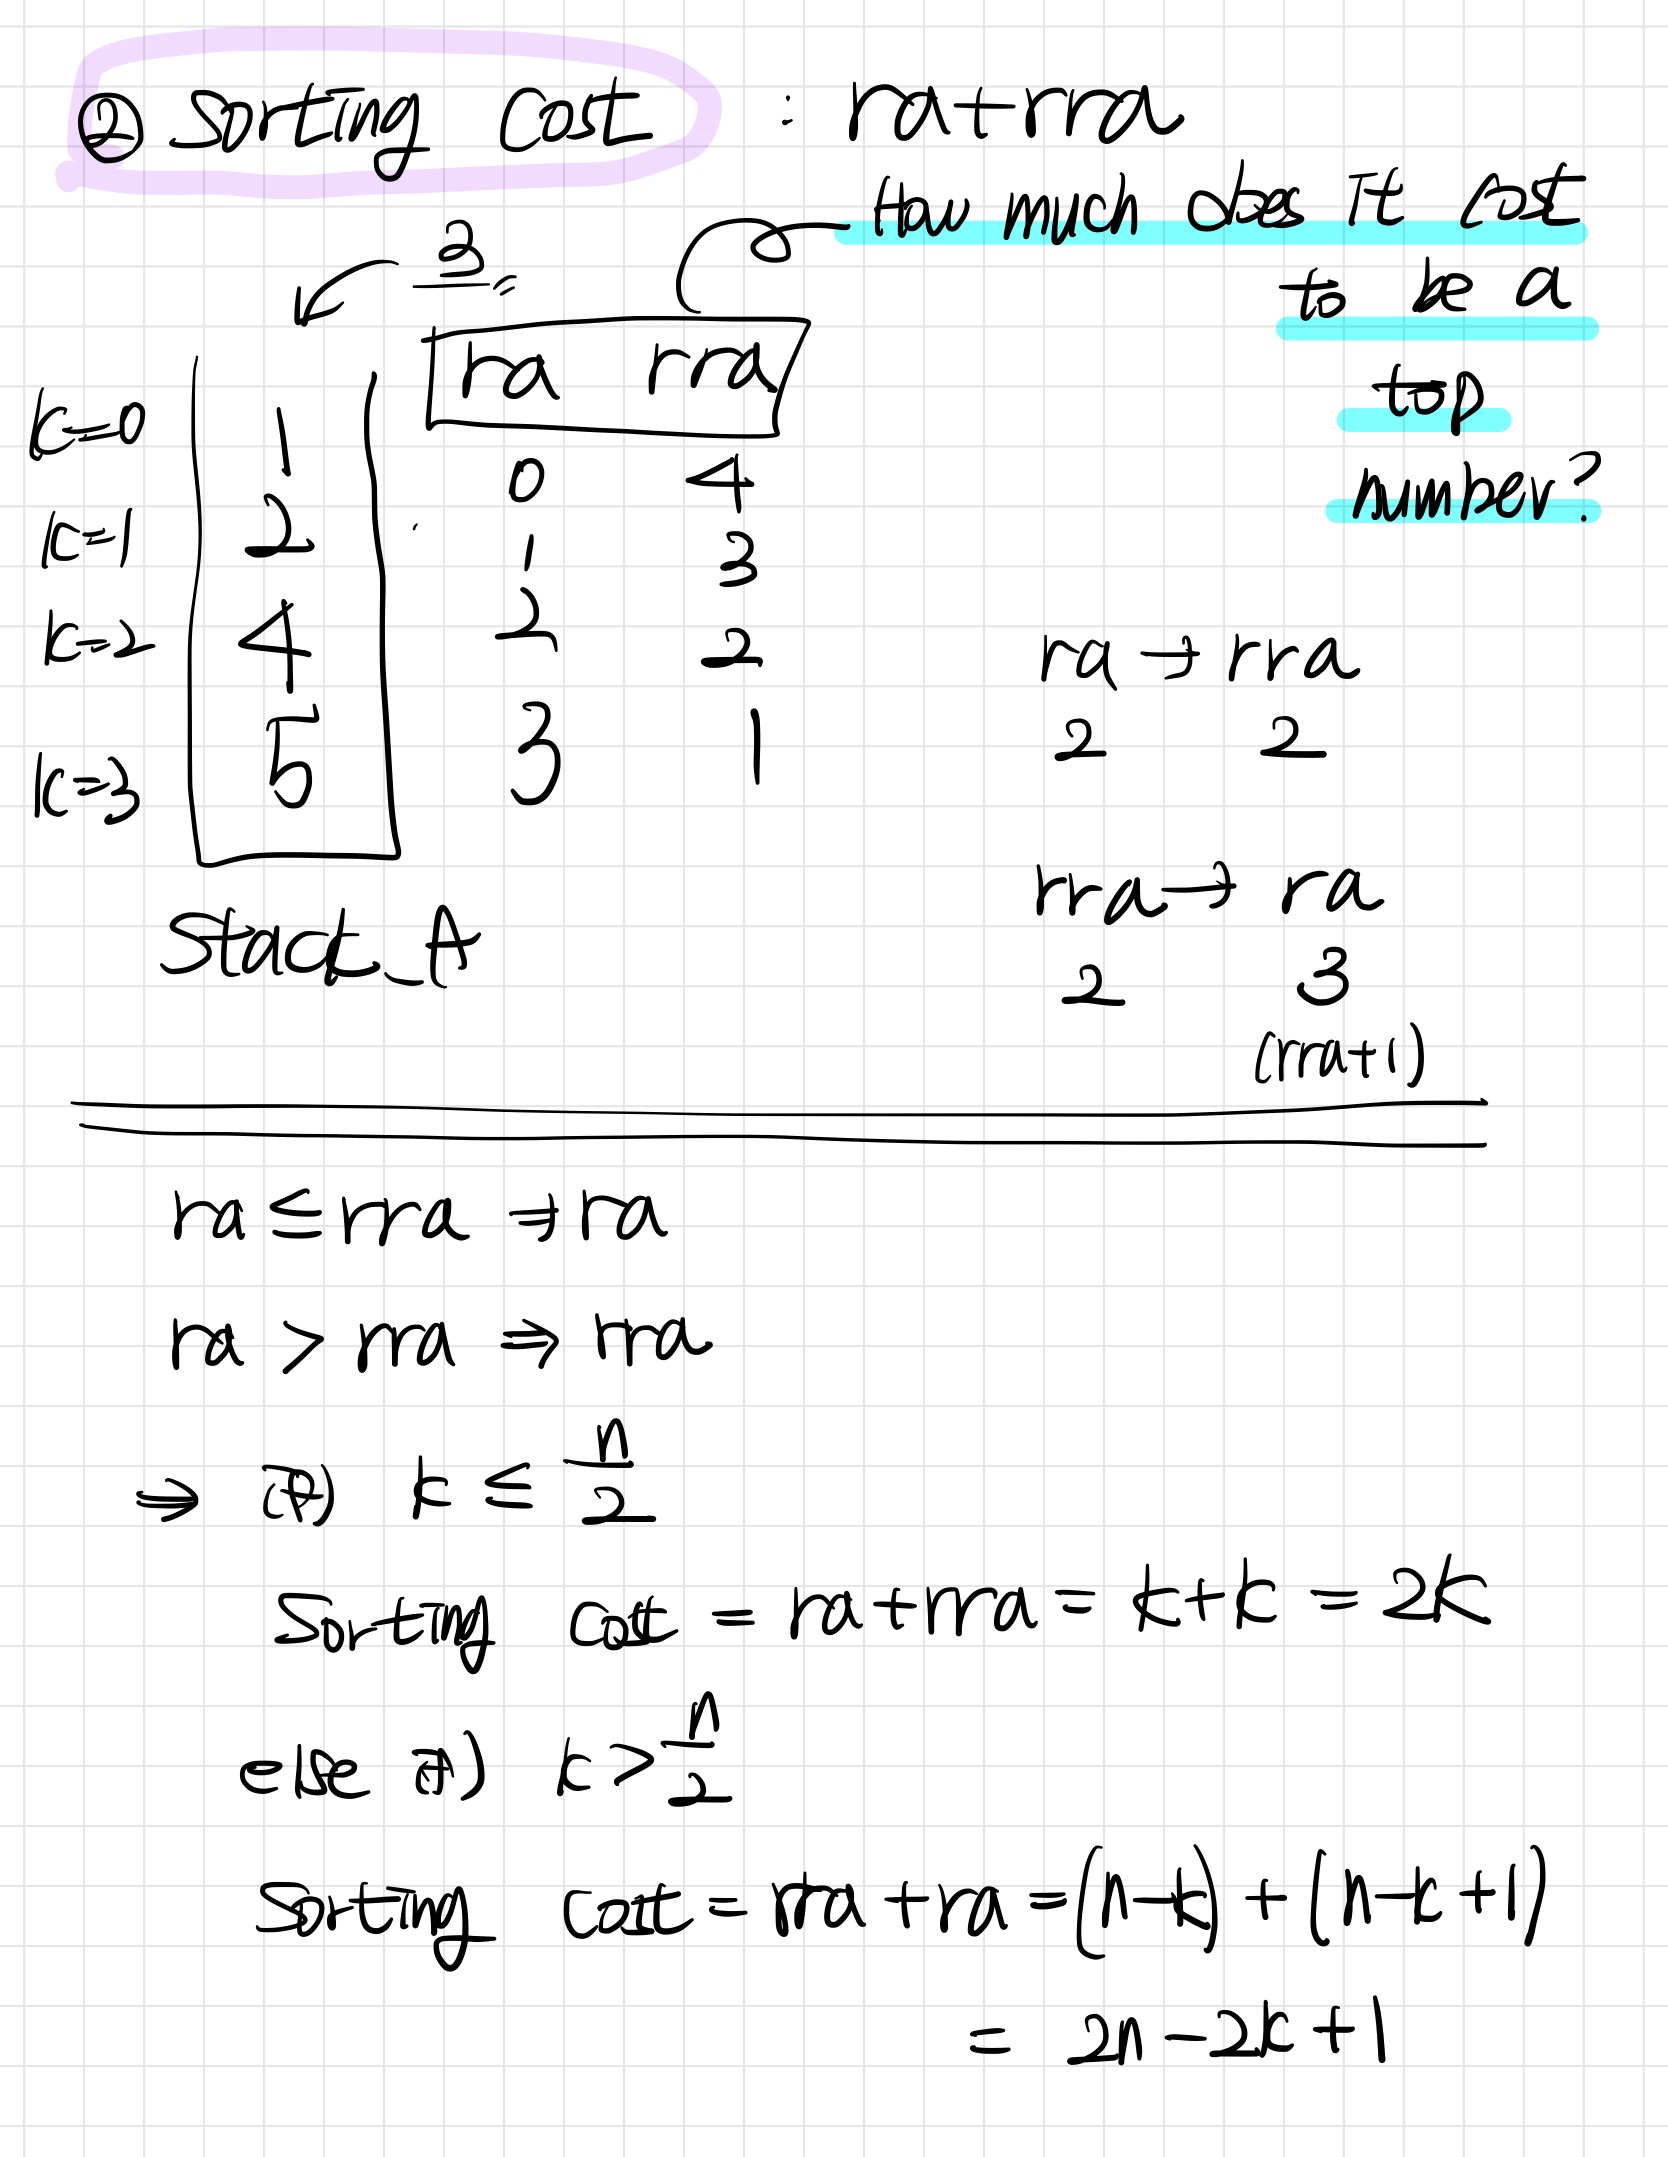 ② Sorting Cost : ra+rra
How much does it cost
to be a
top
number?
3
ra rra
k=0 1 0 4
k=1 2 1 3
k=2 4 2 2
k=3 5 3 1
Stack_A
ra → rra
2 2
rra → ra
2 3
(rra+1)
ra ≤ rra ⇒ ra
ra > rra ⇒ rra
⇒ if) k ≤ n/2
Sorting cost = ra+rra = k+k = 2k
else if) k > n/2
Sorting cost = rra+ra = (n-k) + (n-k+1)
= 2n-2k+1